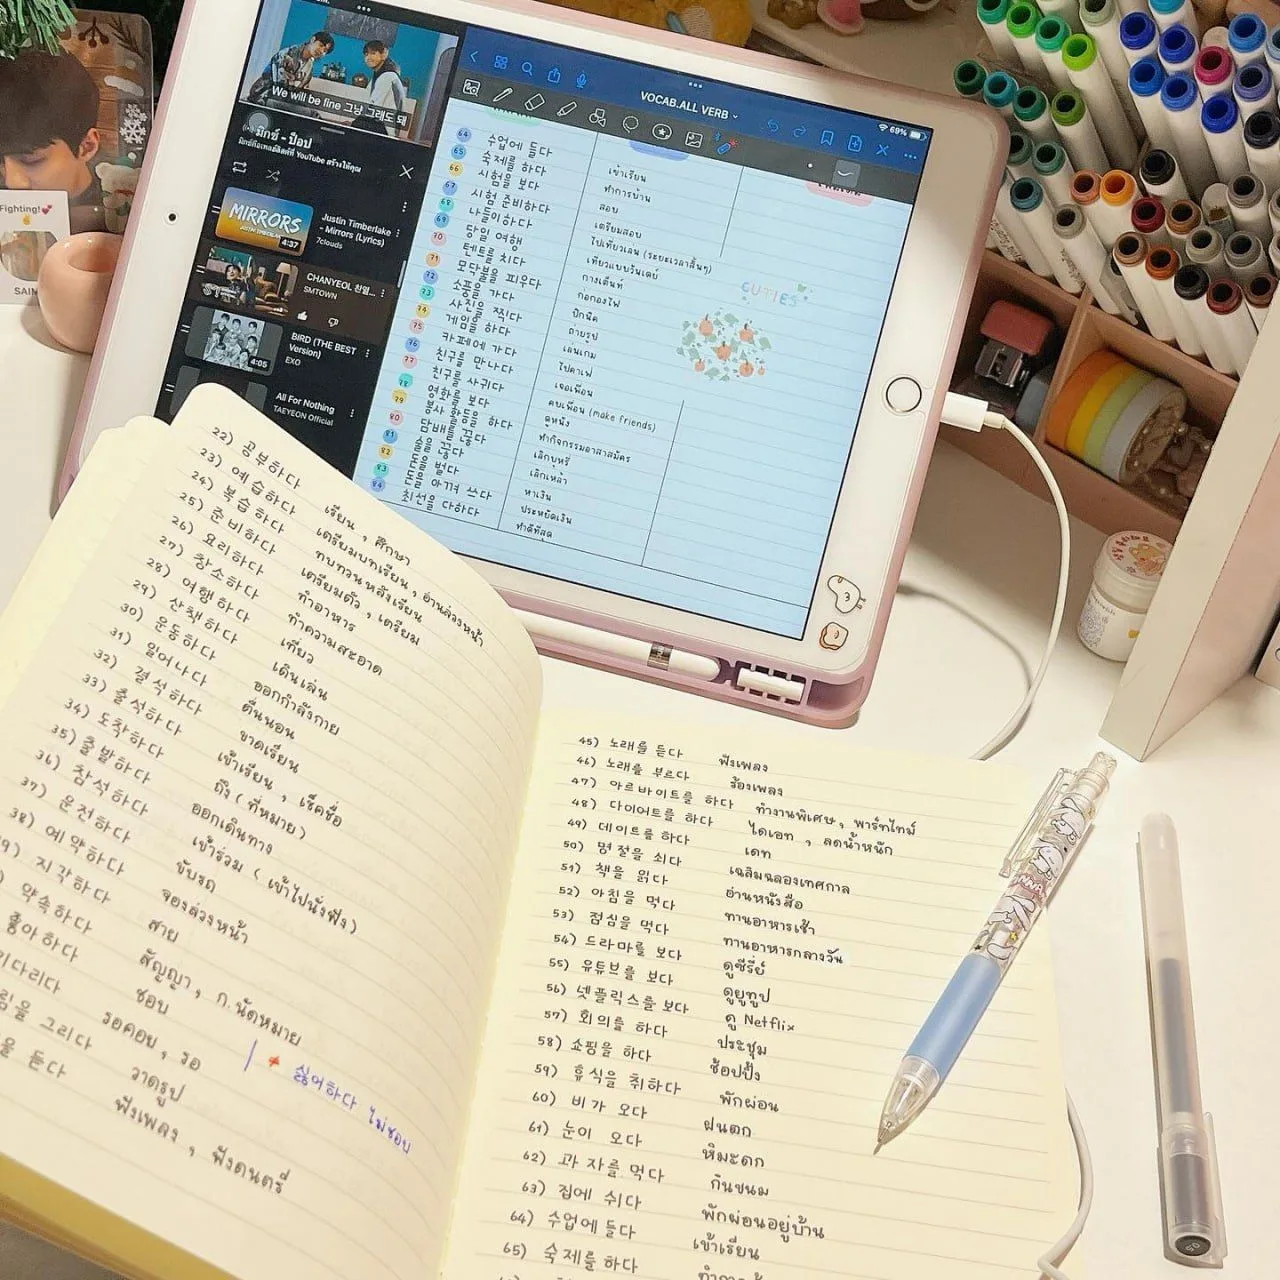 We will be fine 그냥 그래도 돼
มิกซ์ - ป๊อป
มิกซ์คือเพลย์ลิสต์ที่ YouTube สร้างให้คุณ
MIRRORS
JUSTIN TIMBERLAKE
4:37
Justin Timberlake
- Mirrors (Lyrics)
7clouds
CHANYEOL 찬열...
SMTOWN
BIRD (THE BEST
Version)
EXO
4:05
All For Nothing
TAEYEON Official
Fighting!
VOCAB.ALL VERB
69%
64 수업에 듣다 เข้าเรียน
65 숙제를 하다 ทำการบ้าน
66 시험을 보다 สอบ
67 시험 준비하다 เตรียมสอบ
68 나들이하다 ไปเที่ยวเล่น (ระยะเวลาสั้นๆ)
69 당일 여행 เที่ยวแบบวันเดย์
70 텐트를 치다 กางเต็นท์
71 모닥불을 피우다 ก่อกองไฟ
72 소풍을 가다 ปิกนิค
73 사진을 찍다 ถ่ายรูป
74 게임을 하다 เล่นเกม
75 카페에 가다 ไปคาเฟ่
76 친구를 만나다 เจอเพื่อน
77 친구를 사귀다 คบเพื่อน (make friends)
78 영화를 보다 ดูหนัง
79 봉사 활동을 하다 ทำกิจกรรมอาสาสมัคร
80 담배를 끊다 เลิกบุหรี่
81 술을 끊다 เลิกเหล้า
82 돈을 벌다 หาเงิน
83 돈을 아껴 쓰다 ประหยัดเงิน
84 최선을 다하다 ทำดีที่สุด
CUTIES
22) 공부하다 เรียน , ศึกษา
23) 예습하다 เตรียมบทเรียน , อ่านล่วงหน้า
24) 복습하다 ทบทวนหลังเรียน
25) 준비하다 เตรียมตัว , เตรียม
26) 요리하다 ทำอาหาร
27) 청소하다 ทำความสะอาด
28) 여행하다 เที่ยว
29) 산책하다 เดินเล่น
30) 운동하다 ออกกำลังกาย
31) 일어나다 ตื่นนอน
32) 결석하다 ขาดเรียน
33) 출석하다 เข้าเรียน , เช็คชื่อ
34) 도착하다 ถึง (ที่หมาย)
35) 출발하다 ออกเดินทาง
36) 참석하다 เข้าร่วม ( เข้าไปนั่งฟัง)
37) 운전하다 ขับรถ
38) 예약하다 จองล่วงหน้า
9) 지각하다 สาย
약속하다 สัญญา , ก.นัดหมาย
좋아하다 ชอบ
기다리다 รอคอย , รอ
림을 그리다 วาดรูป
을 듣다 ฟังเพลง , ฟังดนตรี
+ 싫어하다 ไม่ชอบ
45) 노래를 듣다 ฟังเพลง
46) 노래를 부르다 ร้องเพลง
47) 아르바이트를 하다 ทำงานพิเศษ , พาร์ทไทม์
48) 다이어트를 하다 ไดเอท , ลดน้ำหนัก
49) 데이트를 하다 เดท
50) 명절을 쇠다 เฉลิมฉลองเทศกาล
51) 책을 읽다 อ่านหนังสือ
52) 아침을 먹다 ทานอาหารเช้า
53) 점심을 먹다 ทานอาหารกลางวัน
54) 드라마를 보다 ดูซีรี่ย์
55) 유튜브를 보다 ดูยูทูป
56) 넷플릭스를 보다 ดู Netflix
57) 회의를 하다 ประชุม
58) 쇼핑을 하다 ช้อปปิ้ง
59) 휴식을 취하다 พักผ่อน
60) 비가 오다 ฝนตก
61) 눈이 오다 หิมะตก
62) 과자를 먹다 กินขนม
63) 집에 쉬다 พักผ่อนอยู่บ้าน
64) 수업에 듣다 เข้าเรียน
65) 숙제를 하다